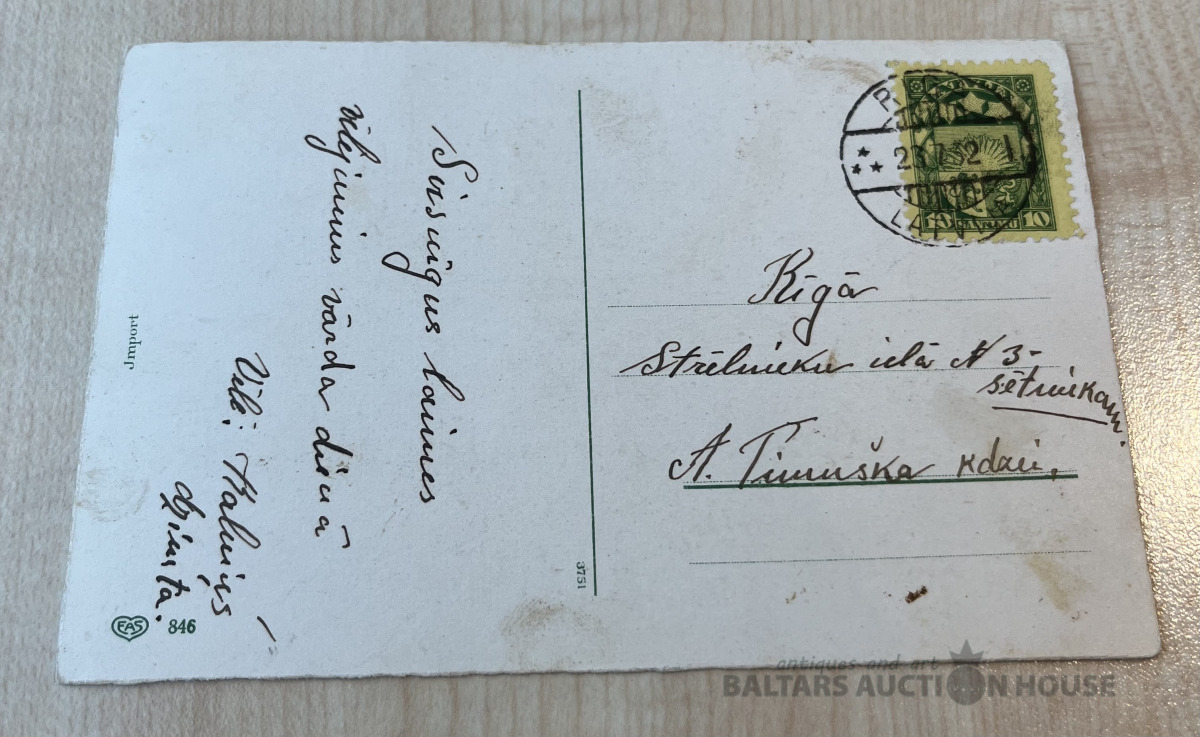 Sirsnigus laimes
vēlējumus vārda dienā
Vilh. Kalniņš
dzimta.
Import
EAS 846
3751
LATVIJA
10 SANTIMU 10
Rīgā
Strēlnieku ielā N 3-
sētnikam.
A. Timuška kdzei.
antiques and art
BALTARS AUCTION HOUSE